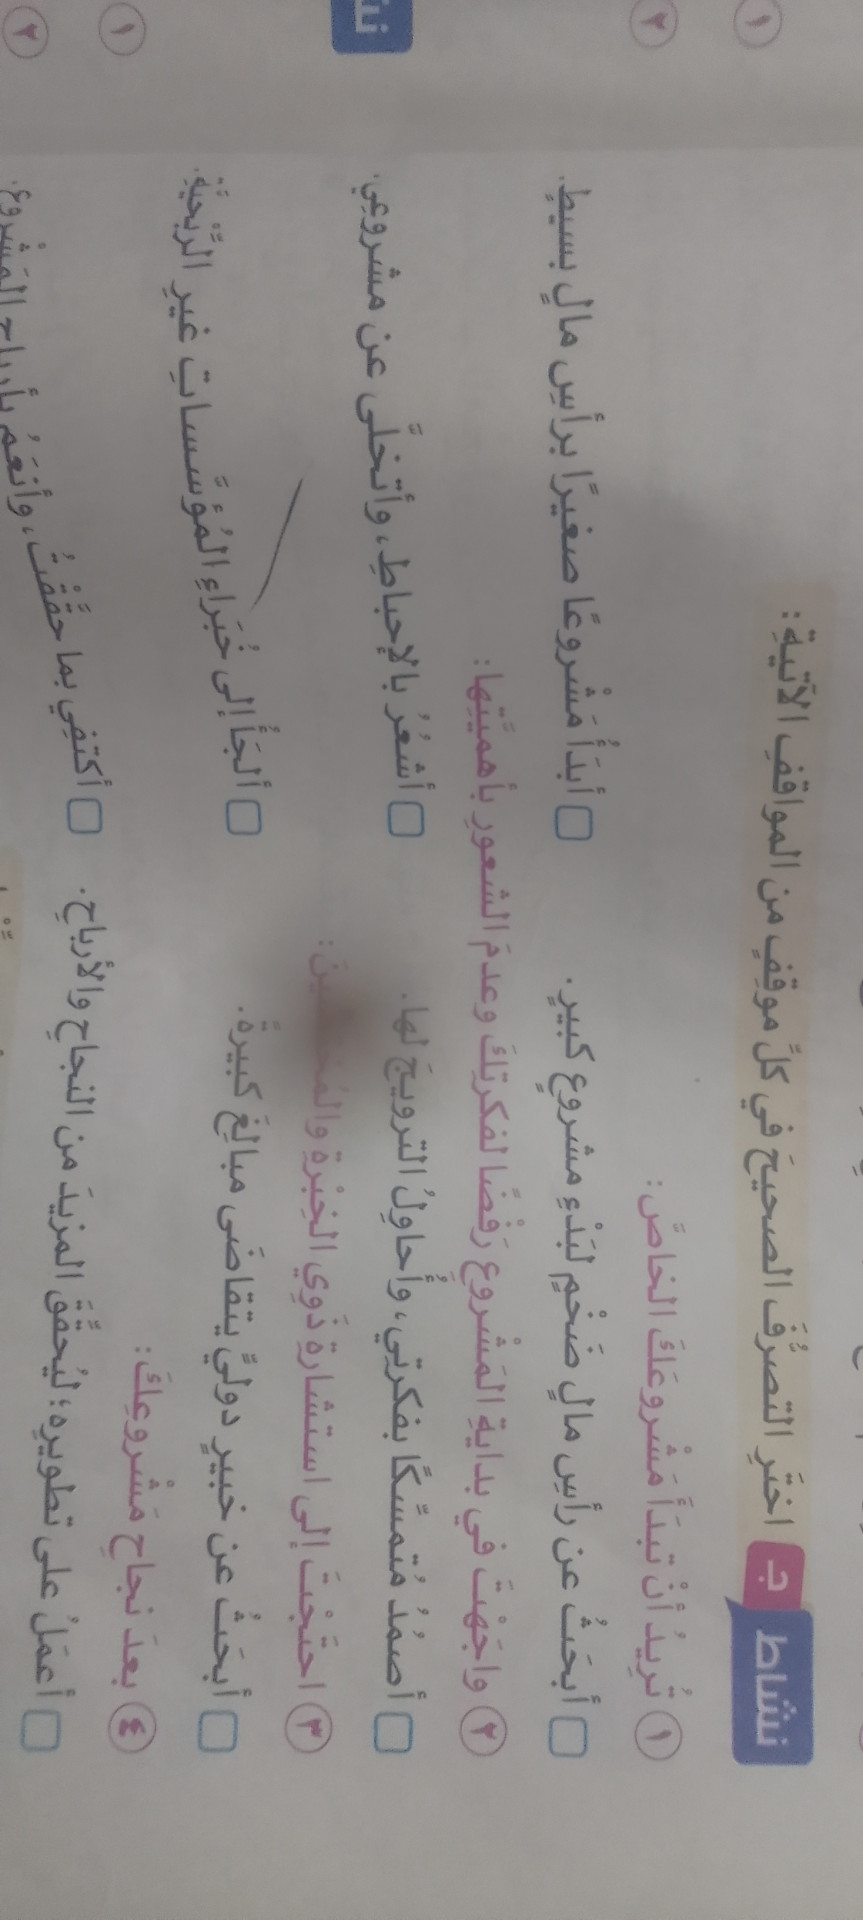 نشاط ج اختَرِ التصرُّفَ الصحيحَ في كلِّ موقفٍ من المواقفِ الآتيةِ:
١ تُريدُ أنْ تبدَأَ مَشْروعَكَ الخاصَّ:
أبحَثُ عن رأسِ مالٍ ضَخْمٍ لبَدْءِ مشروعٍ كبيرٍ. أبدَأُ مَشْروعًا صغيرًا برأسِ مالٍ بسيطٍ.
٢ واجَهْتَ في بدايةِ المَشْروعِ رَفْضًا لفكرتِكَ وعدمَ الشعورِ بأهمِّيَّتِها:
أصمُدُ مُتمسِّكًا بفكرتي، وأُحاوِلُ الترويجَ لها. أشعُرُ بالإحباطِ، وأتخلَّى عن مشروعي.
٣ احتَجْتَ إلى استشارةِ ذَوِي الخِبْرةِ
أبحَثُ عن خبيرٍ دوليٍّ يتقاضَى مبالِغَ كبيرةً. ألجَأُ إلى خُبَراءِ المُؤسَّساتِ غيرِ الرِّبْحيَّةِ.
٤ بعدَ نجاحِ مَشْروعِكَ:
أعمَلُ على تطويرِه؛ ليُحقِّقَ المزيدَ من النجاحِ والأرباحِ. أكتَفِي بما حقَّقْتُ، وأنعَمُ بأرباحِ المَشْروعِ.
١
٢
١
٢